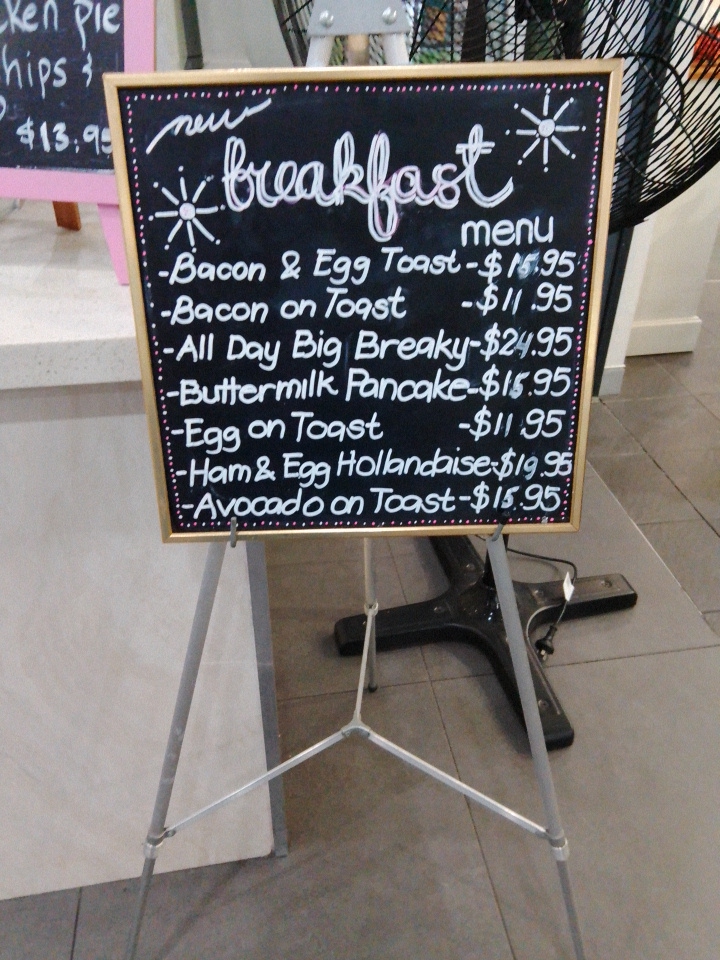 cken pie
hips &
$13.95
new
breakfast
menu
-Bacon & Egg Toast-$15.95
-Bacon on Toast -$11.95
-All Day Big Breaky-$24.95
-Buttermilk Pancake-$15.95
-Egg on Toast -$11.95
-Ham & Egg Hollandaise-$19.95
-Avocado on Toast-$15.95